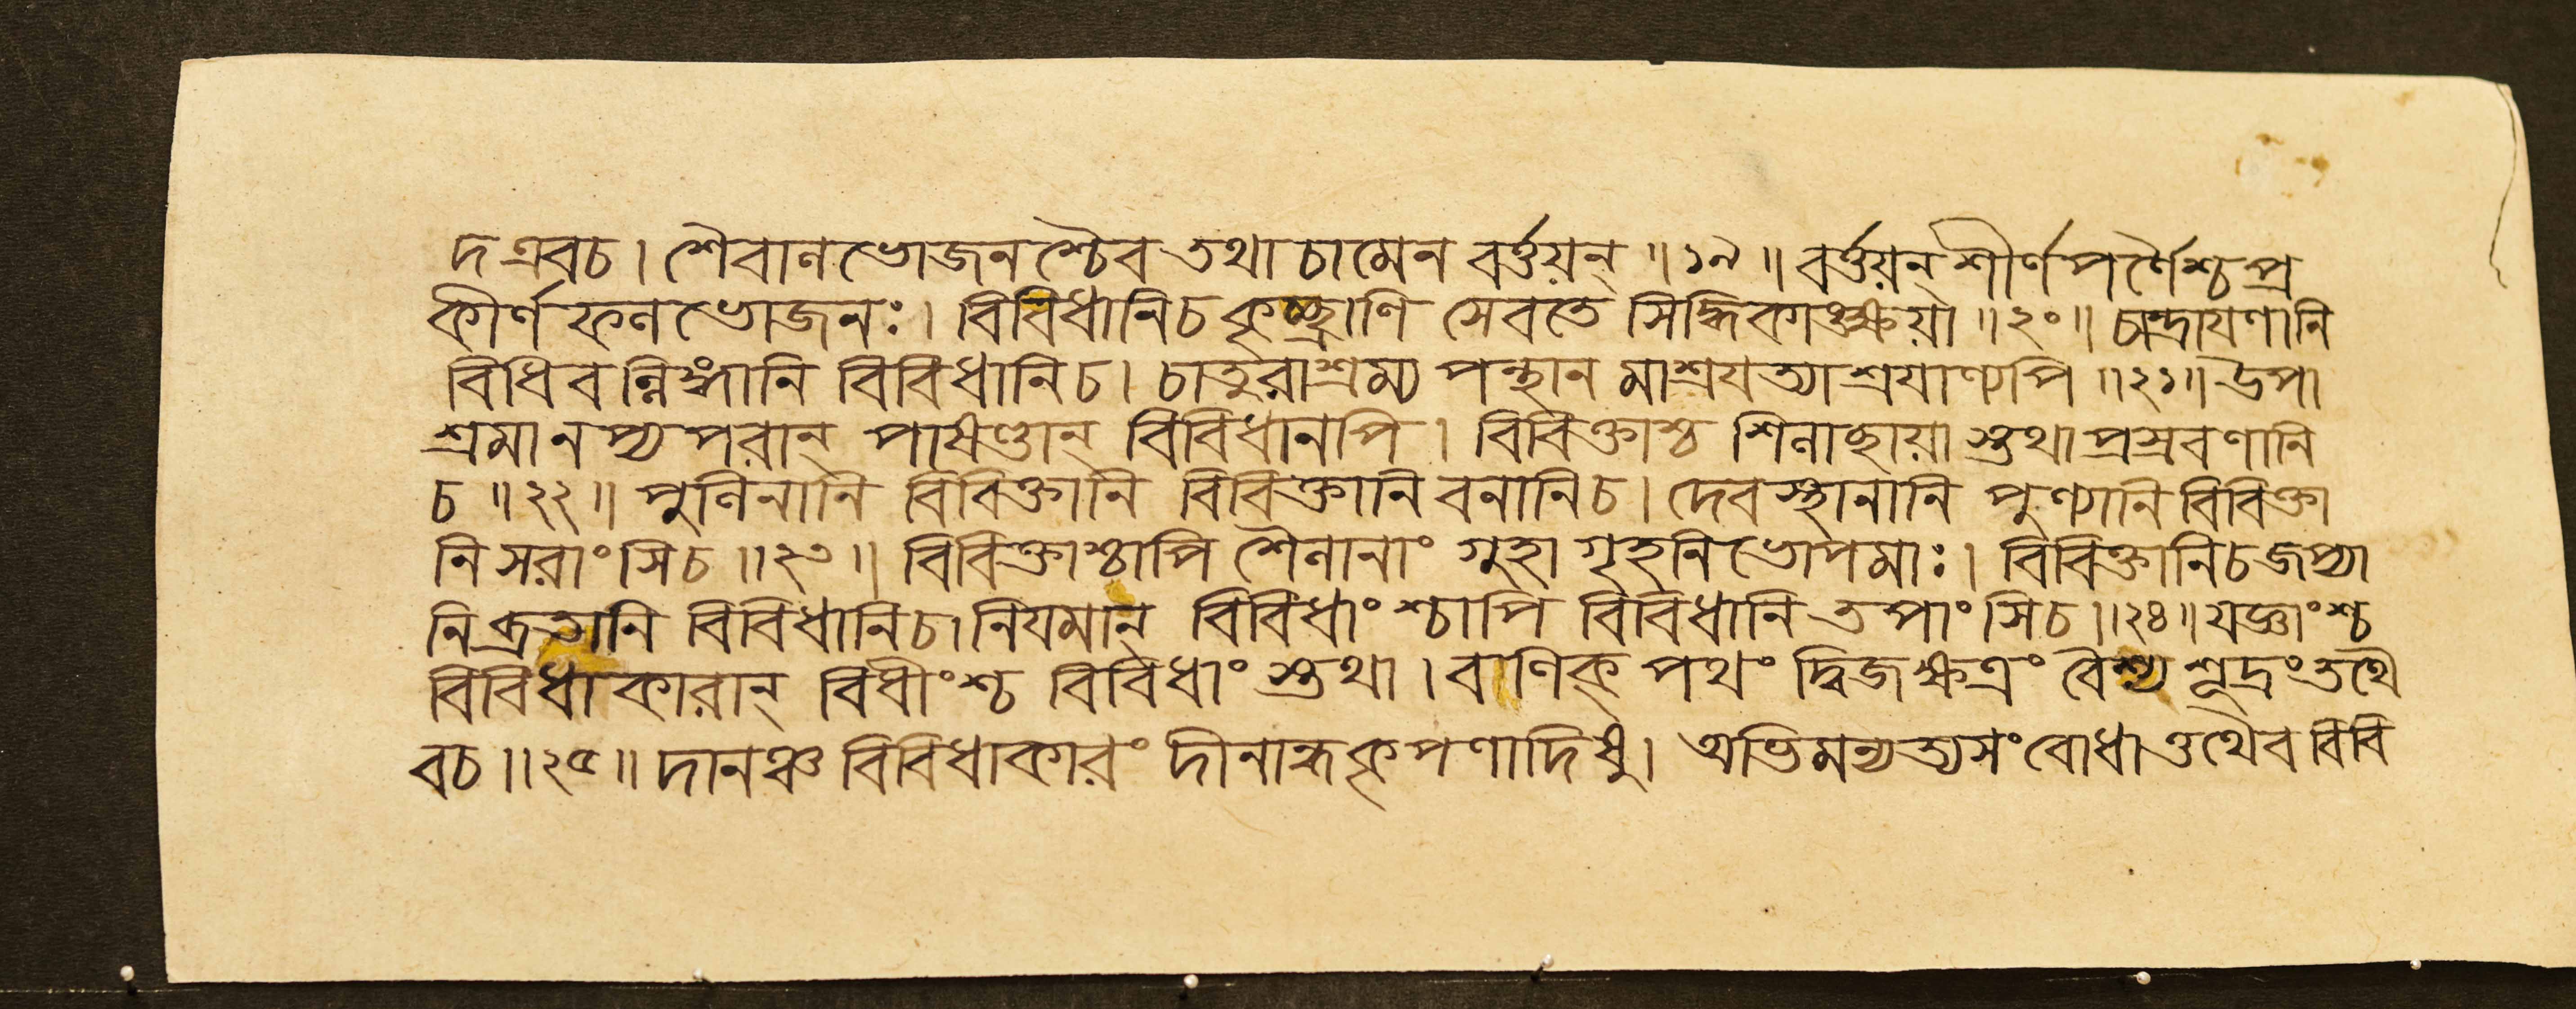 দ এবচ। শৈবালভোজনশ্চৈব তথা চামেন বর্ত্তয়ন্ ॥১৯॥ বর্ত্তয়ন্ শীর্ণপর্ণৈশ্চ প্র
কীর্ণফলভোজনঃ। বিবিধানিচ কৃচ্ছ্রাণি সেবতে সিদ্ধিকাঙ্ক্ষয়া ॥২০॥ চান্দ্রাযণানি
বিধিবল্লিঙ্গানি বিবিধানিচ। চাতুরাশ্রম্য পন্থান মাশ্রযত্যাশ্রযাণ্যপি ॥২১॥ উপা
শ্রমানপ্যপরান্ পাষণ্ডান্ বিবিধানপি। বিবিক্তাশ্চ শিলাছায়া স্তথা প্রস্রবণানি
চ ॥২২॥ পুলিনানি বিবিক্তানি বিবিক্তানি বনানিচ। দেবস্থানানি পুণ্যানি বিবিক্তা
নি সরাংসিচ ॥২৩॥ বিবিক্তাশ্চাপি শৈলানাং গুহা গৃহনিভোপমাঃ। বিবিক্তানিচ জপ্যা
নি ব্রতানি বিবিধানিচ। নিযমান্ বিবিধাংশ্চাপি বিবিধানি তপাংসিচ ॥২৪॥ যজ্ঞাংশ্চ
বিবিধাকারান্ বিধীংশ্চ বিবিধাংস্তথা। বাণিক্ পথং দ্বিজক্ষত্রং বৈশ্য শূদ্রং তথৈ
বচ ॥২৫॥ দানঞ্চ বিবিধাকারং দীনান্ধকৃপণাদিষু। অভিমন্যত্যসংবোধা ত্তথৈব বিবি